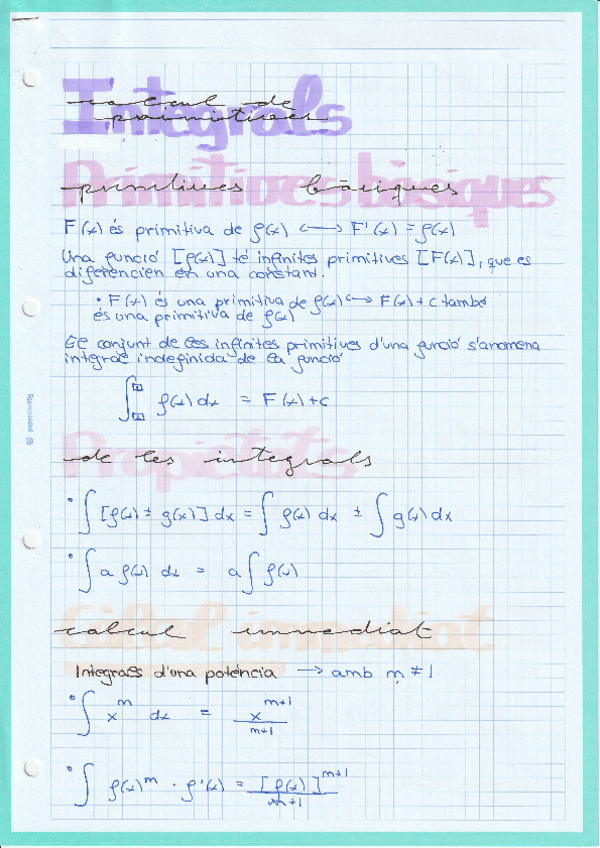 Integrals
calcul de
primitives
Primitives bàsiques
primitives bàsiques
F(x) és primitiva de f(x) <—> F'(x) = f(x)
Una funció [f(x)] té infinites primitives [F(x)], que es
diferencien en una constant.
• F(x) és una primitiva de f(x) <—> F(x) + c també
és una primitiva de f(x)
El conjunt de les infinites primitives d'una funció s'anomena
integral indefinida de la funció
∫ f(x) dx = F(x) + c
Propietats
de les integrals
• ∫ [f(x) ± g(x)] dx = ∫ f(x) dx ± ∫ g(x) dx
• ∫ a f(x) dx = a ∫ f(x)
Càlcul immediat
calcul immediat
Integrals d'una potència —> amb m ≠ 1
• ∫ x^m dx = x^(m+1) / (m+1)
• ∫ f(x)^m · f'(x) = [f(x)]^(m+1) / (m+1)